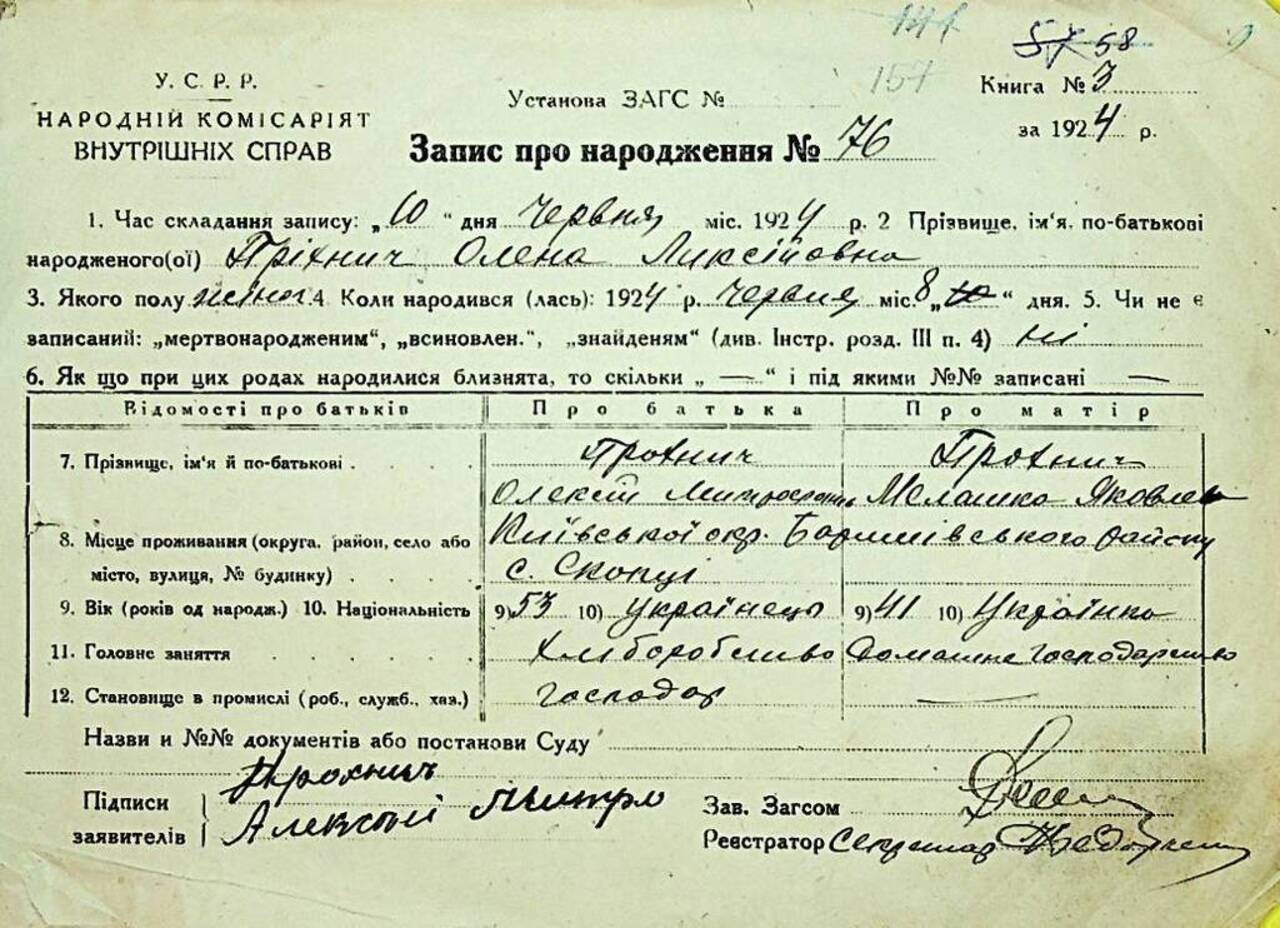 141
57 58
157
У. С. Р. Р.
НАРОДНІЙ КОМІСАРІЯТ
ВНУТРІШНІХ СПРАВ
Установа ЗАГС №
Книга № 3
за 1924 р.
Запис про народження № 76
1. Час складання запису: „10“ дня Червня міс. 1924 р. 2 Прізвище, ім'я, по-батькові
народженого(ої) Пріхнич Олена Ликсійовна
3. Якого полу жіноч. 4 Коли народився (лась): 1924 р. Червня міс. 8 „10“ дня. 5. Чи не є
записаний: „мертвонародженим“, „всиновлен.“, „знайденям“ (див. Інстр. розд. III п. 4) ні
6. Як що при цих родах народилися близнята, то скільки „ — “ і під якими №№ записані —
Відомості про батьків Про батька Про матір
7. Прізвище, ім'я й по-батькові . . . . Прохнич Прохнич
Олексій Мелашка Яковлев
8. Місце проживання (округа, район, село або Київської окр. Баришівського району
місто, вулиця, № будинку) . . . . с. Скопці
9. Вік (років од народж.) 10. Національність 9) 53 10) Українець 9) 41 10) Українка
11. Головне заняття . . . . . . Хлиборобство Домашне господарство
12. Становище в промислі (роб., служб., хаз.) господар —
Назви и №№ документів або постанови Суду
Прохнич
Підписи
заявителів Алексій Митро
Зав. Загсом
Реєстратор Секретар